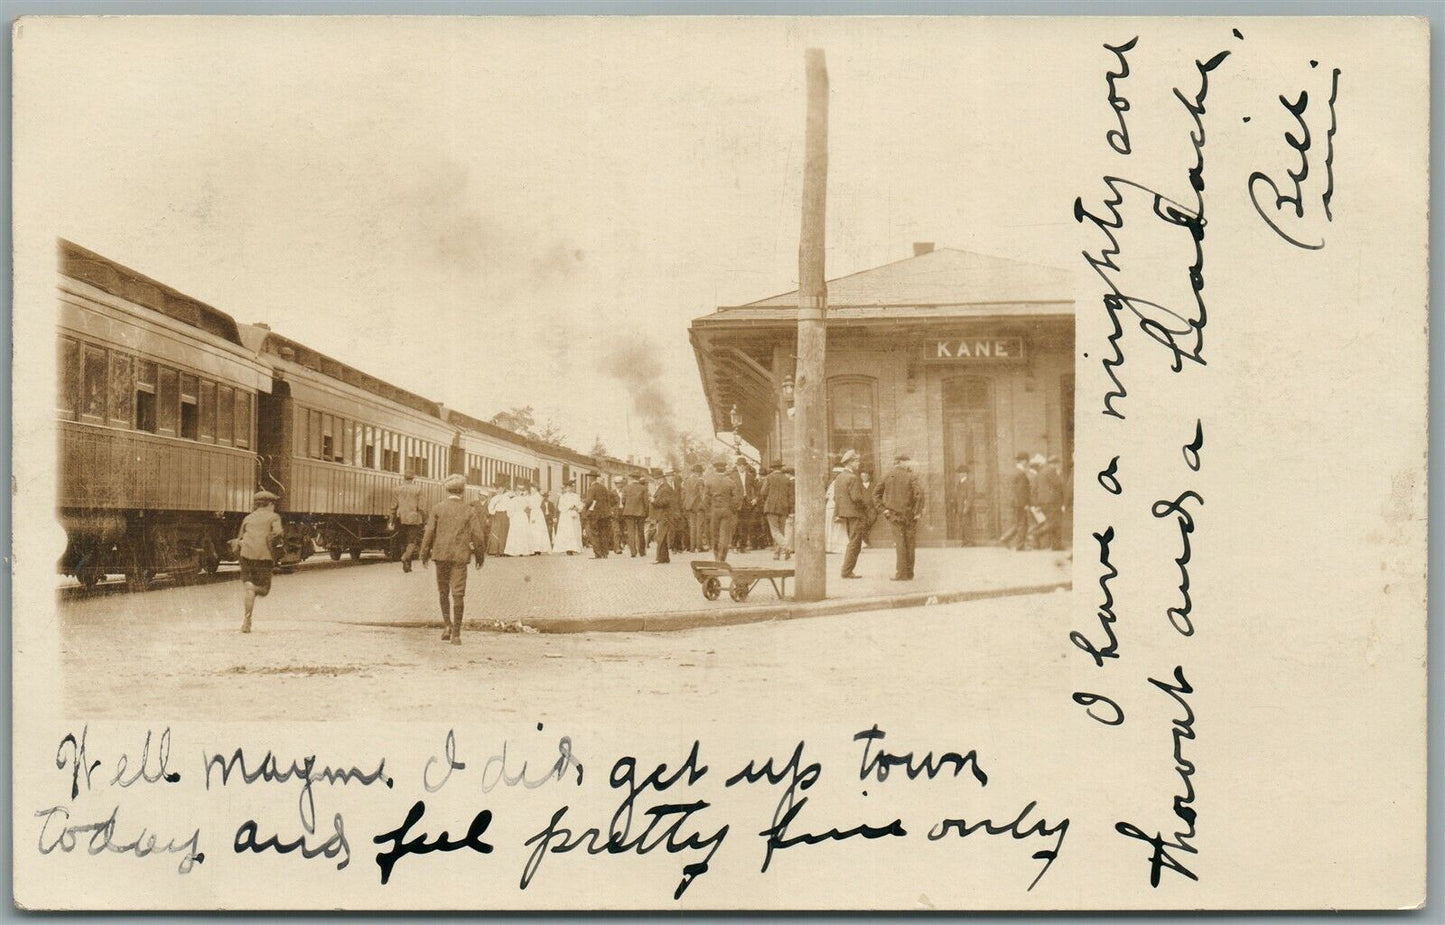 KANE
Well Mayme I did get up town
today and feel pretty fine only
I have a mighty sore
throat and a headache,
Bill.